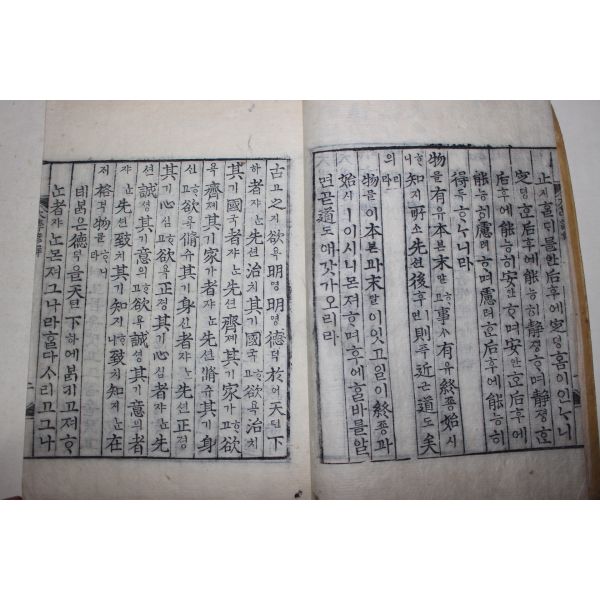 止지홀디를안后후에定뎡홈이인ᄂᆞ니
定뎡ᄒᆞᆫ后후에能능히靜졍ᄒᆞ며靜졍ᄒᆞᆫ
后후에能능히安안ᄒᆞ며安안ᄒᆞᆫ后후에
能능히慮려ᄒᆞ며慮려ᄒᆞᆫ后후에能능히
得득ᄒᆞᄂᆞ니라
物믈有유本본末말ᄒᆞ고事ᄉᆞ有유終죵始시
ᄒᆞ니知지所소先션後후ㅣ면則즉近근道도矣
의리라
物믈이本본과末말이잇고일이終죵과
始시ㅣ이시니몬져ᄒᆞ며후에ᄒᆞᆯ바를알
면곧道도애갓가오리라
古고之지欲욕明명明명德덕於어天텬下
하者쟈ᄂᆞᆫ先션治치其기國국ᄒᆞ고欲욕治치
其기國국者쟈ᄂᆞᆫ先션齊졔其기家가ᄒᆞ고欲
욕齊졔其기家가者쟈ᄂᆞᆫ先션脩슈其기身
신ᄒᆞ고欲욕脩슈其기身신者쟈ᄂᆞᆫ先션正졍
其기心심ᄒᆞ고欲욕正졍其기心심者쟈ᄂᆞᆫ先
션誠셩其기意의ᄒᆞ고欲욕誠셩其기意의者
쟈ᄂᆞᆫ先션致치其기知지ᄒᆞ니致치知지ᄂᆞᆫ在
ᄌᆡ格격物믈ᄒᆞ니라
녜ᄇᆞᆰ은德덕을天텬下하에ᄇᆞᆰ히고져ᄒᆞ
ᄂᆞᆫ者쟈ᄂᆞᆫ몬져그나라흘다ᄉᆞ리고그나